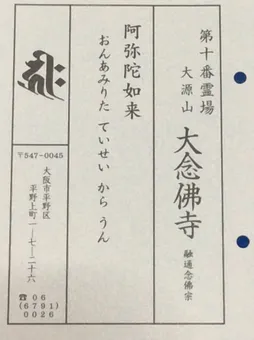 第十番霊場
大源山 大念佛寺 融通念佛宗
阿弥陀如来
おんあみりた ていせい から うん
〒547-0045
大阪市平野区
平野上町一ー七ー二十六
☎06
(6791)
0026